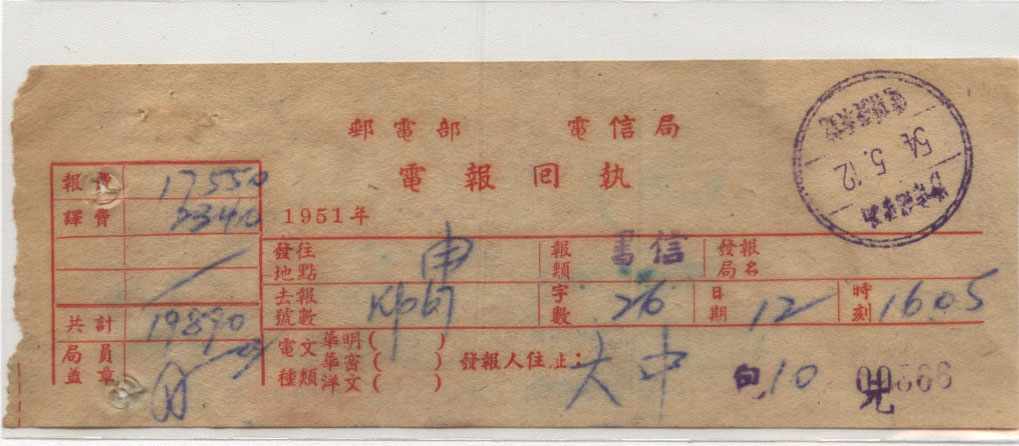 郵電部 電信局
電報回執
54.5.12
報費 17550
譯費 2340
1951年
發往地點 申 報類 書信 發報局名
去報號數 字數 26 日期 12 時刻 16.05
共計 19890
電文種類 華明( ) 華密( ) 洋文( ) 發報人住址: 大中 10
局員蓋章